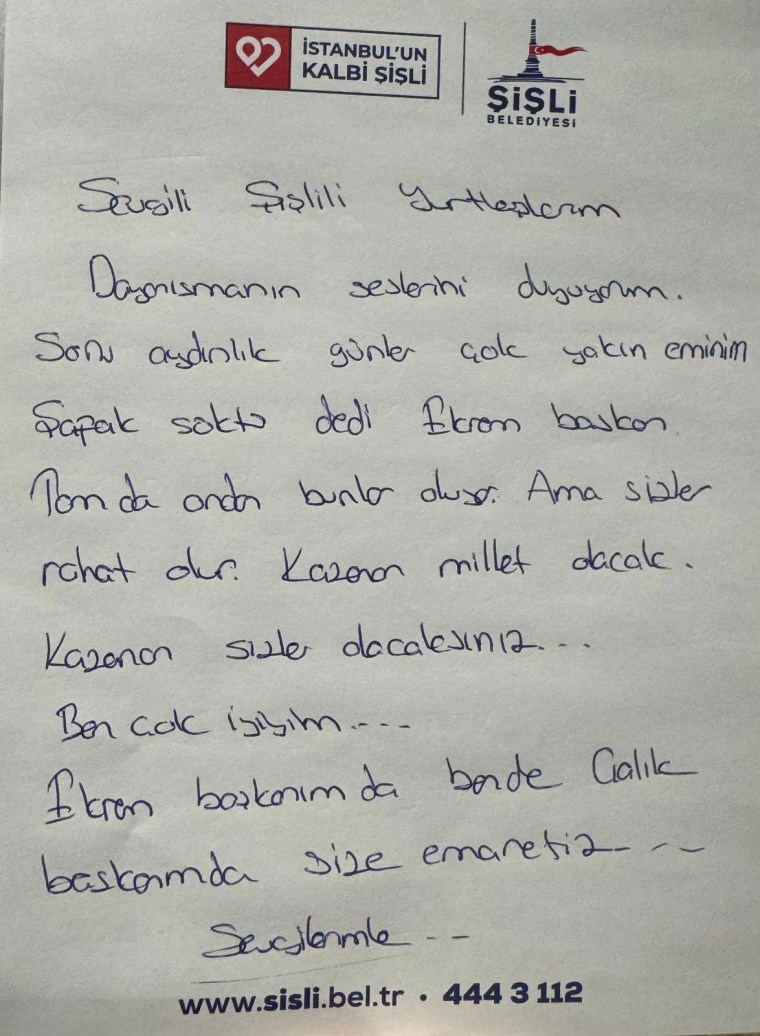 İSTANBUL'UN
KALBİ ŞİŞLİ
ŞİŞLİ
BELEDİYESİ
Sevgili Şişlili Yurttaşlarım
Dayanışmanın seslerini duyuyorum.
Sonu aydınlık günler çok yakın eminim
Şafak söktü dedi Ekrem başkan.
Tam da ondan bunlar oluyor. Ama sizler
rahat olun. Kazanan millet olacak.
Kazanan sizler olacaksınız...
Ben çok iyiyim....
Ekrem başkanım da bende Çalık
başkanımda size emanetiz---
Sevgilerimle --
www.sisli.bel.tr • 444 3 112